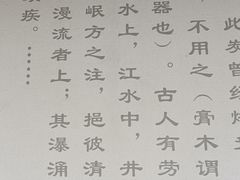 此炭曾经
，不用之（膏木谓
器也）。古人有劳
水上，江水中，井
岷方之注，挹彼清
漫流者上；其瀑涌
疾。……